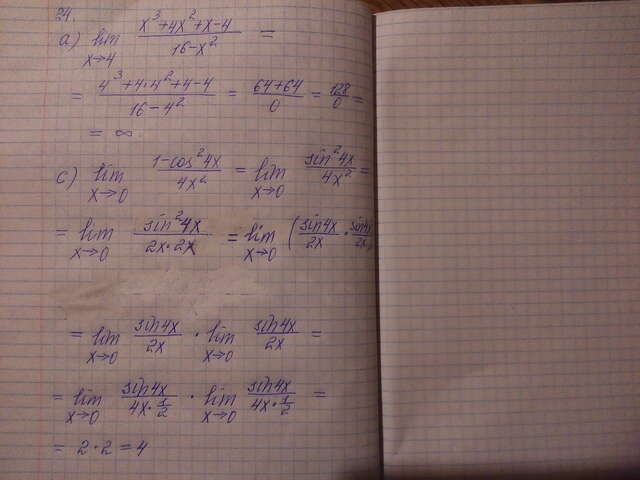 24.
a) lim x→4 (x³+4x²+x-4)/(16-x²) =
= (4³+4·4²+4-4)/(16-4²) = (64+64)/0 = 128/0 =
= ∞.
c) lim x→0 (1-cos²4x)/(4x²) = lim x→0 (sin²4x)/(4x²) =
= lim x→0 (sin²4x)/(2x·2x) = lim x→0 (sin4x/2x · sin4x/2x)
= lim x→0 (sin4x)/(2x) · lim x→0 (sin4x)/(2x) =
= lim x→0 (sin4x)/(4x·1/2) · lim x→0 (sin4x)/(4x·1/2) =
= 2·2=4